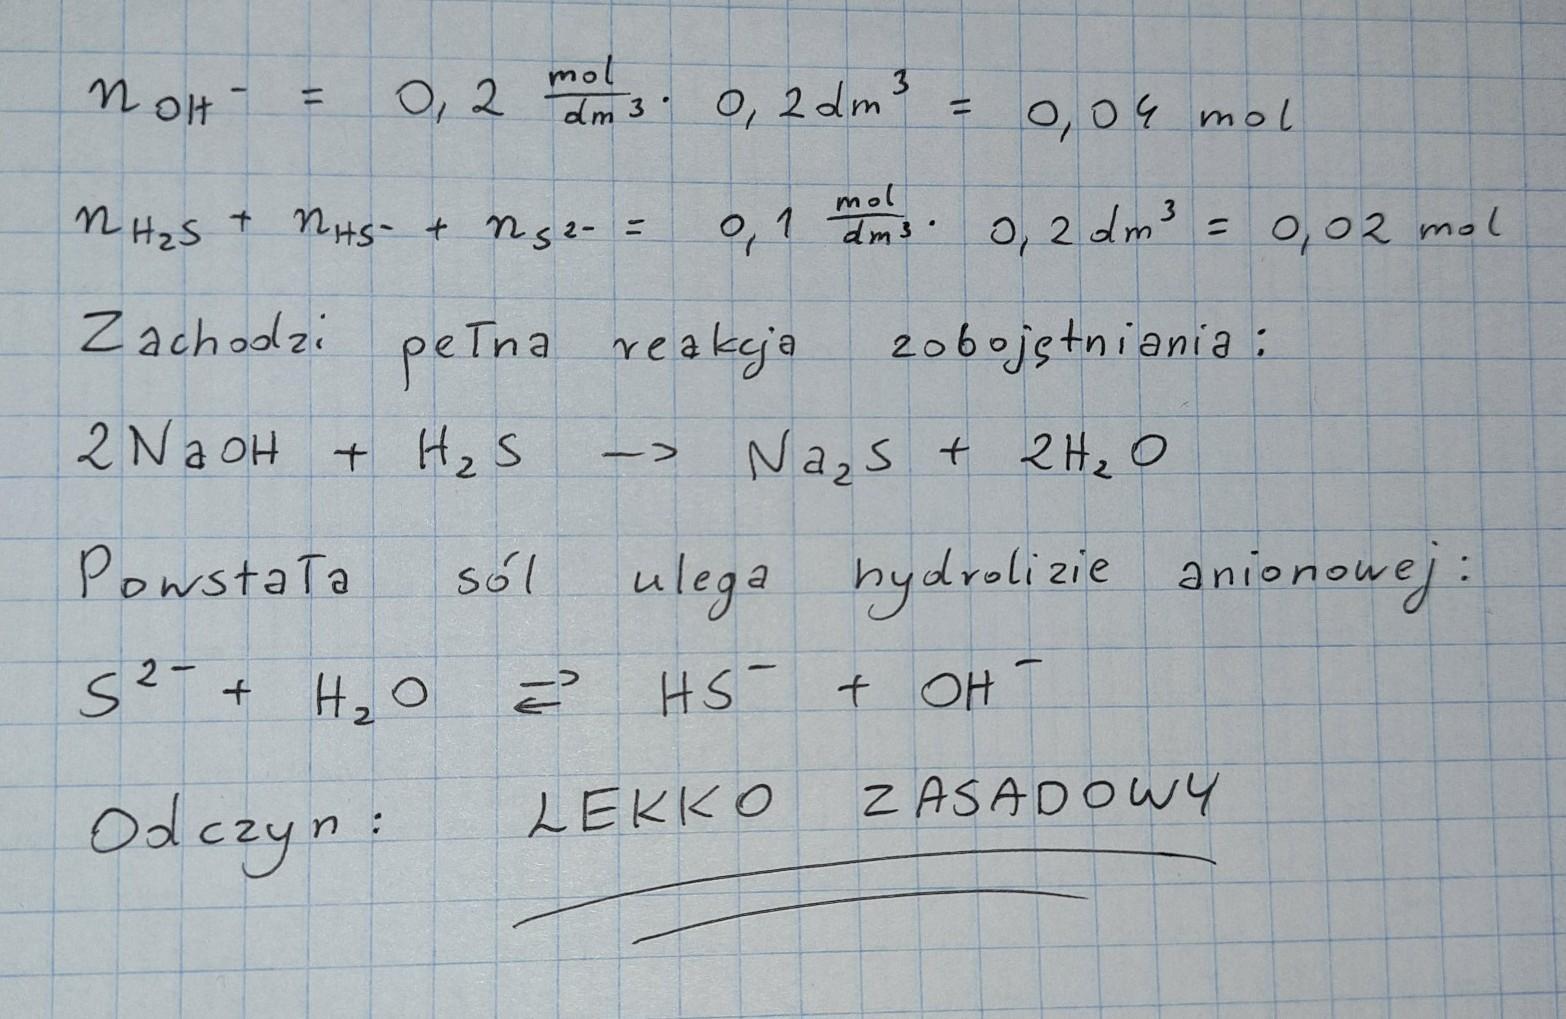 n OH⁻ = 0,2 mol/dm³ · 0,2 dm³ = 0,04 mol
n H₂S + n HS⁻ + n S²⁻ = 0,1 mol/dm³ · 0,2 dm³ = 0,02 mol
Zachodzi pełna reakcja zobojętniania:
2NaOH + H₂S –> Na₂S + 2H₂O
Powstała sól ulega hydrolizie anionowej:
S²⁻ + H₂O ⇄ HS⁻ + OH⁻
Odczyn: LEKKO ZASADOWY